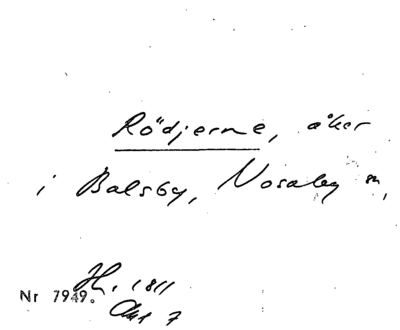 Rödjerne, åker
i Balsby, Nosaby sn,
Hr. 1811
Nr 7949. Akt 7